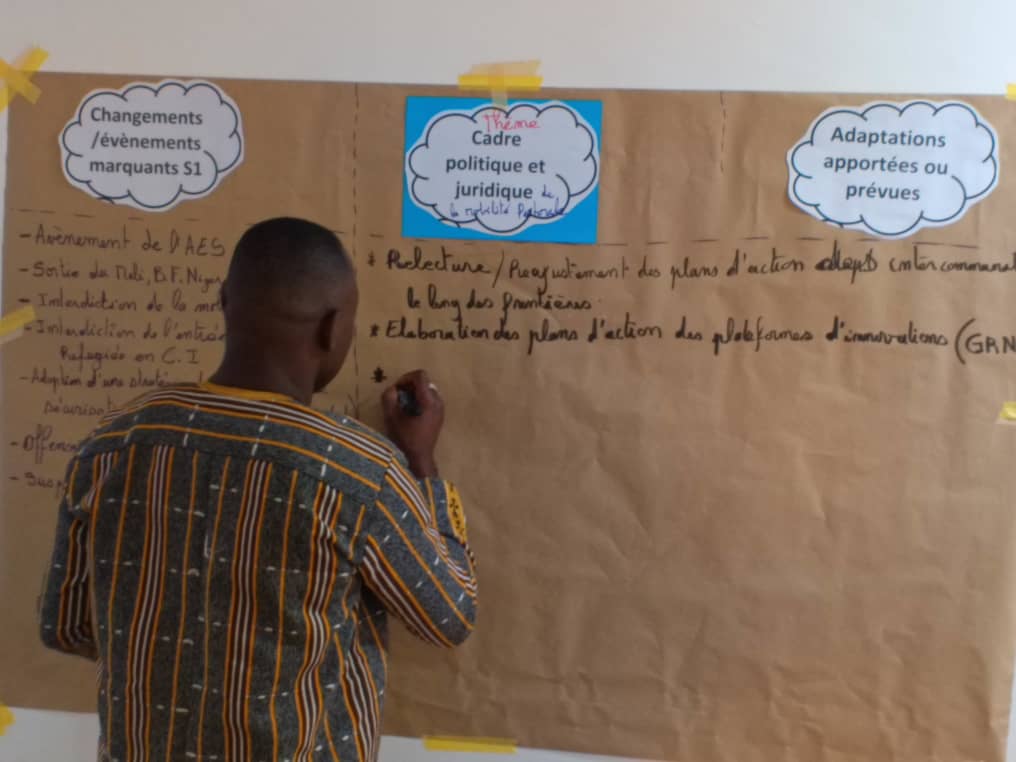 Changements
/évènements
marquants S1
Thème
Cadre
politique et
juridique de
la mobilité Pastorale
Adaptations
apportées ou
prévues
- Avènement de l'AES
- Sortie du Mali, B.F, Niger
- Interdiction de la
- Interdiction de l'entrée
Refugiés en C.I
- Adoption d'une
* Relecture / Reajustement des plans d'action intercommunal
le long des frontières.
* Elaboration des plans d'action des plateformes d'innovations (GRN
*